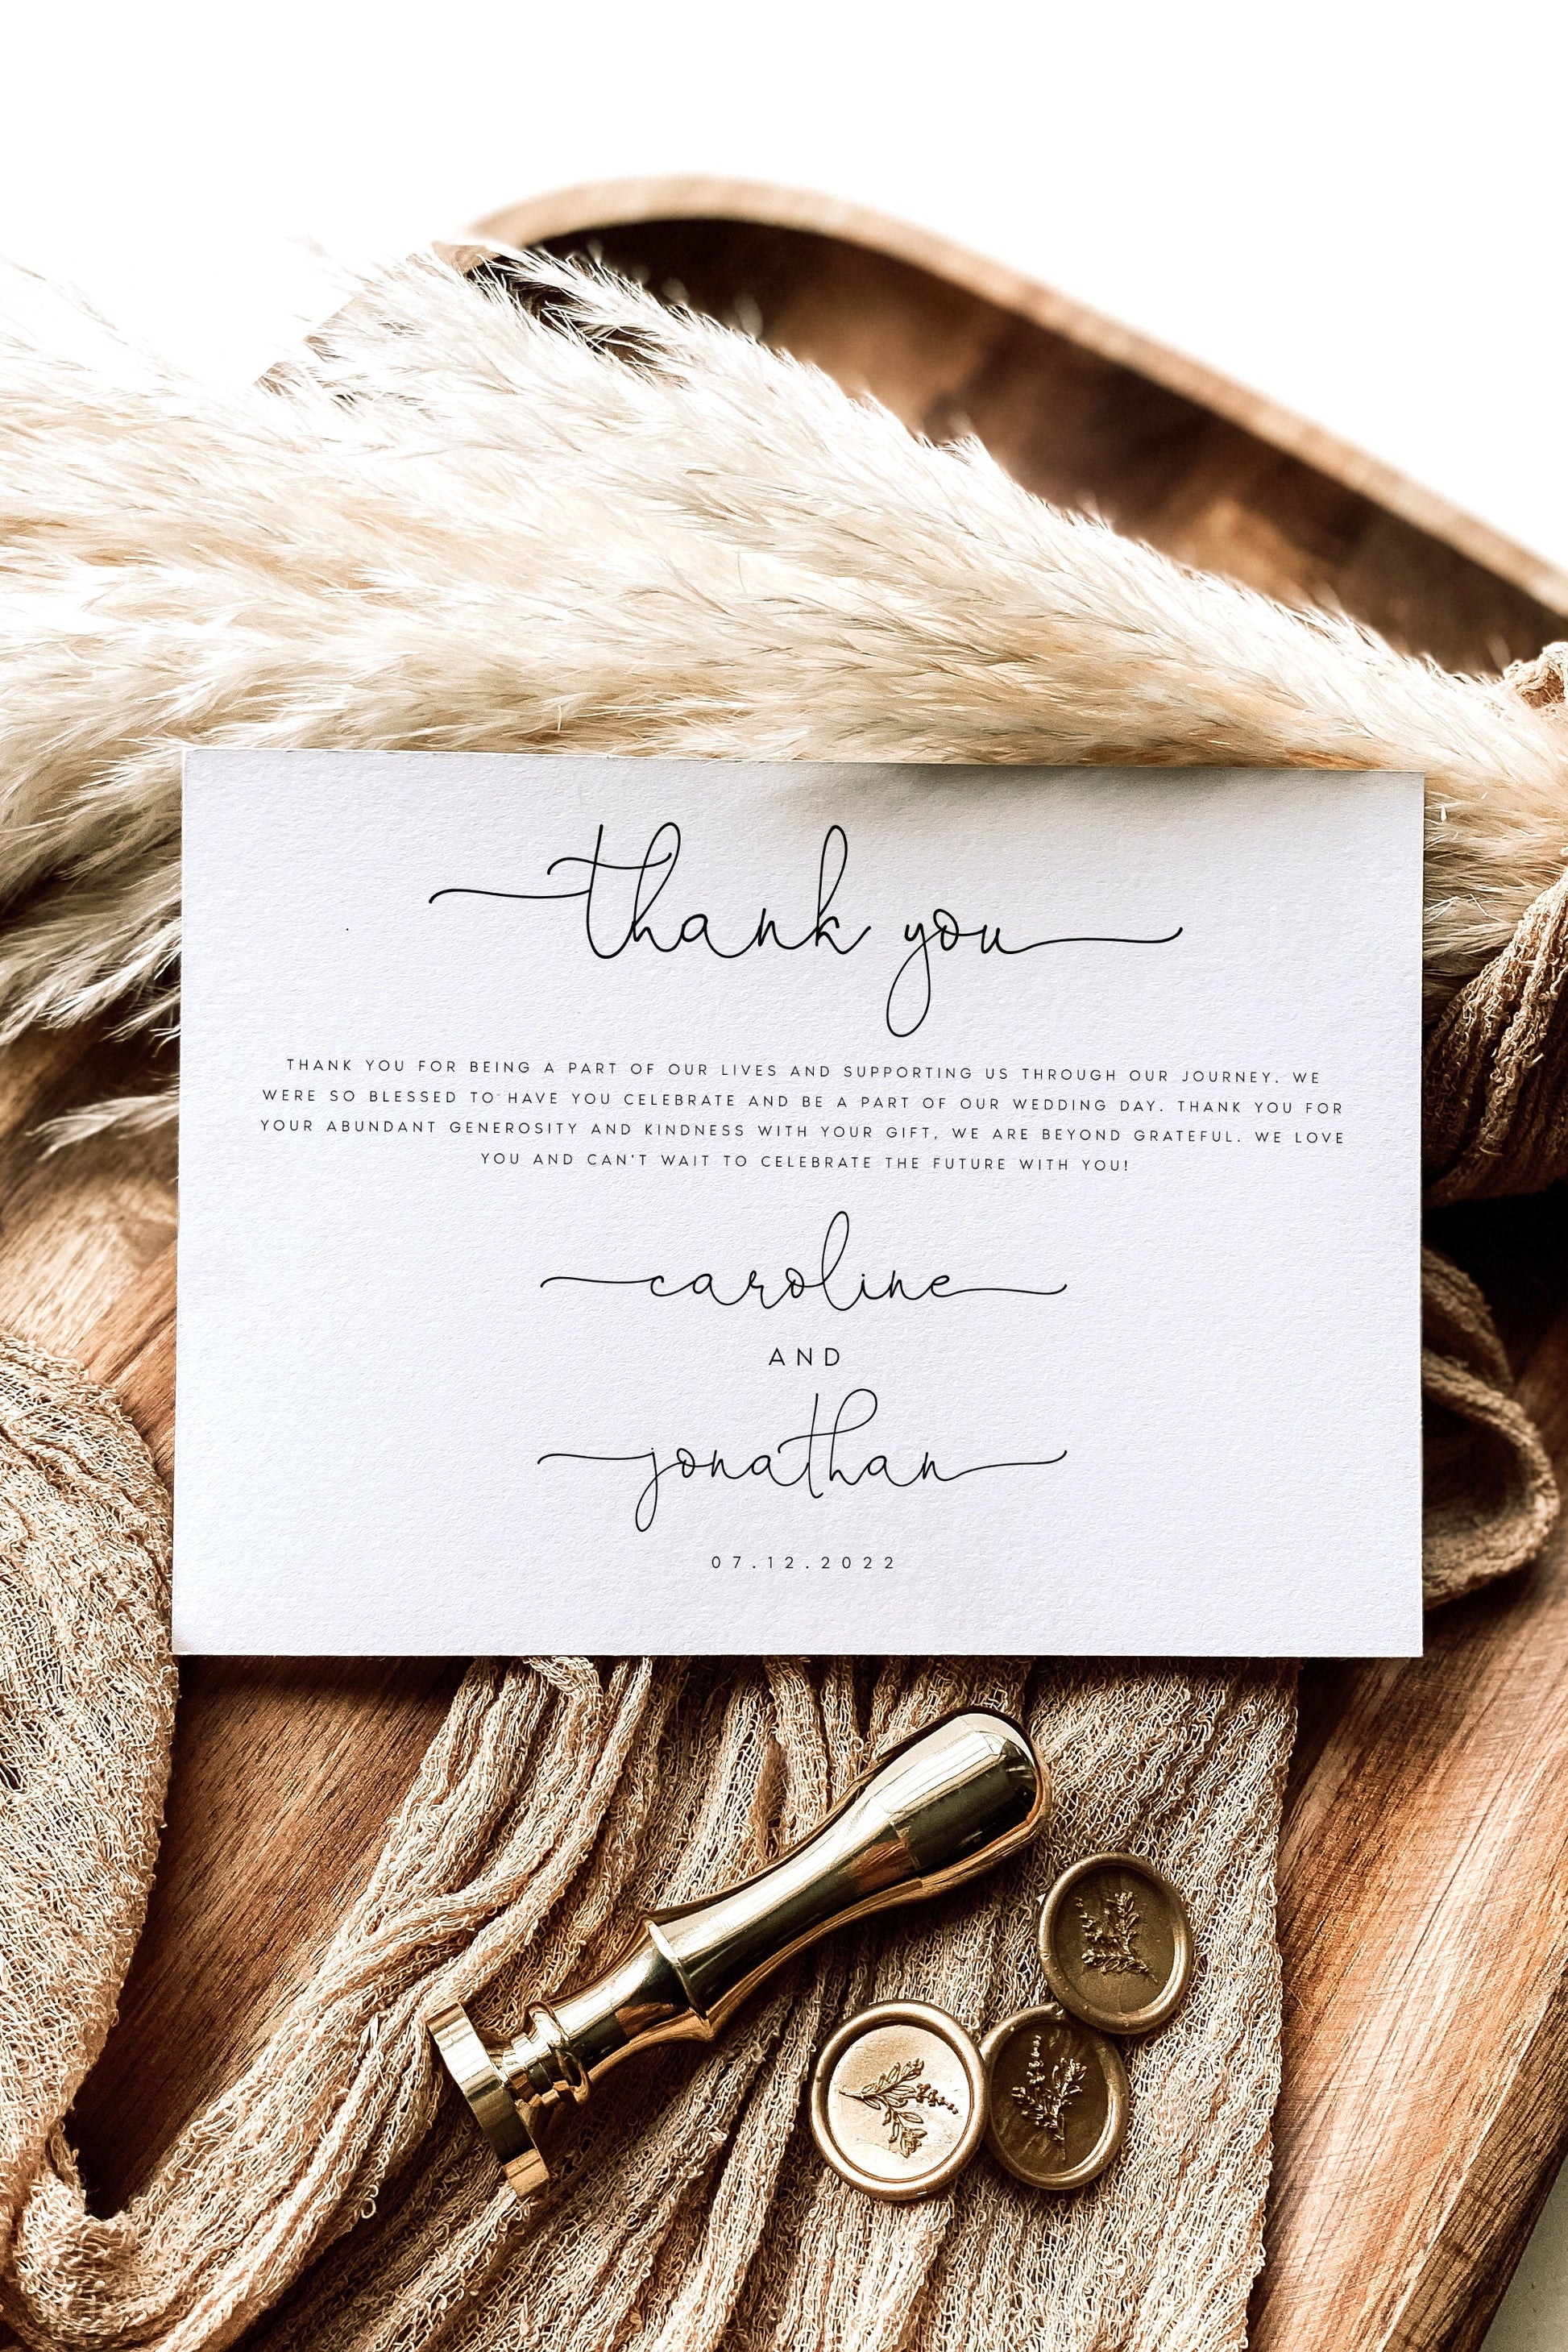 thank you
THANK YOU FOR BEING A PART OF OUR LIVES AND SUPPORTING US THROUGH OUR JOURNEY. WE
WERE SO BLESSED TO HAVE YOU CELEBRATE AND BE A PART OF OUR WEDDING DAY. THANK YOU FOR
YOUR ABUNDANT GENEROSITY AND KINDNESS WITH YOUR GIFT, WE ARE BEYOND GRATEFUL. WE LOVE
YOU AND CAN'T WAIT TO CELEBRATE THE FUTURE WITH YOU!
caroline
AND
jonathan
07.12.2022